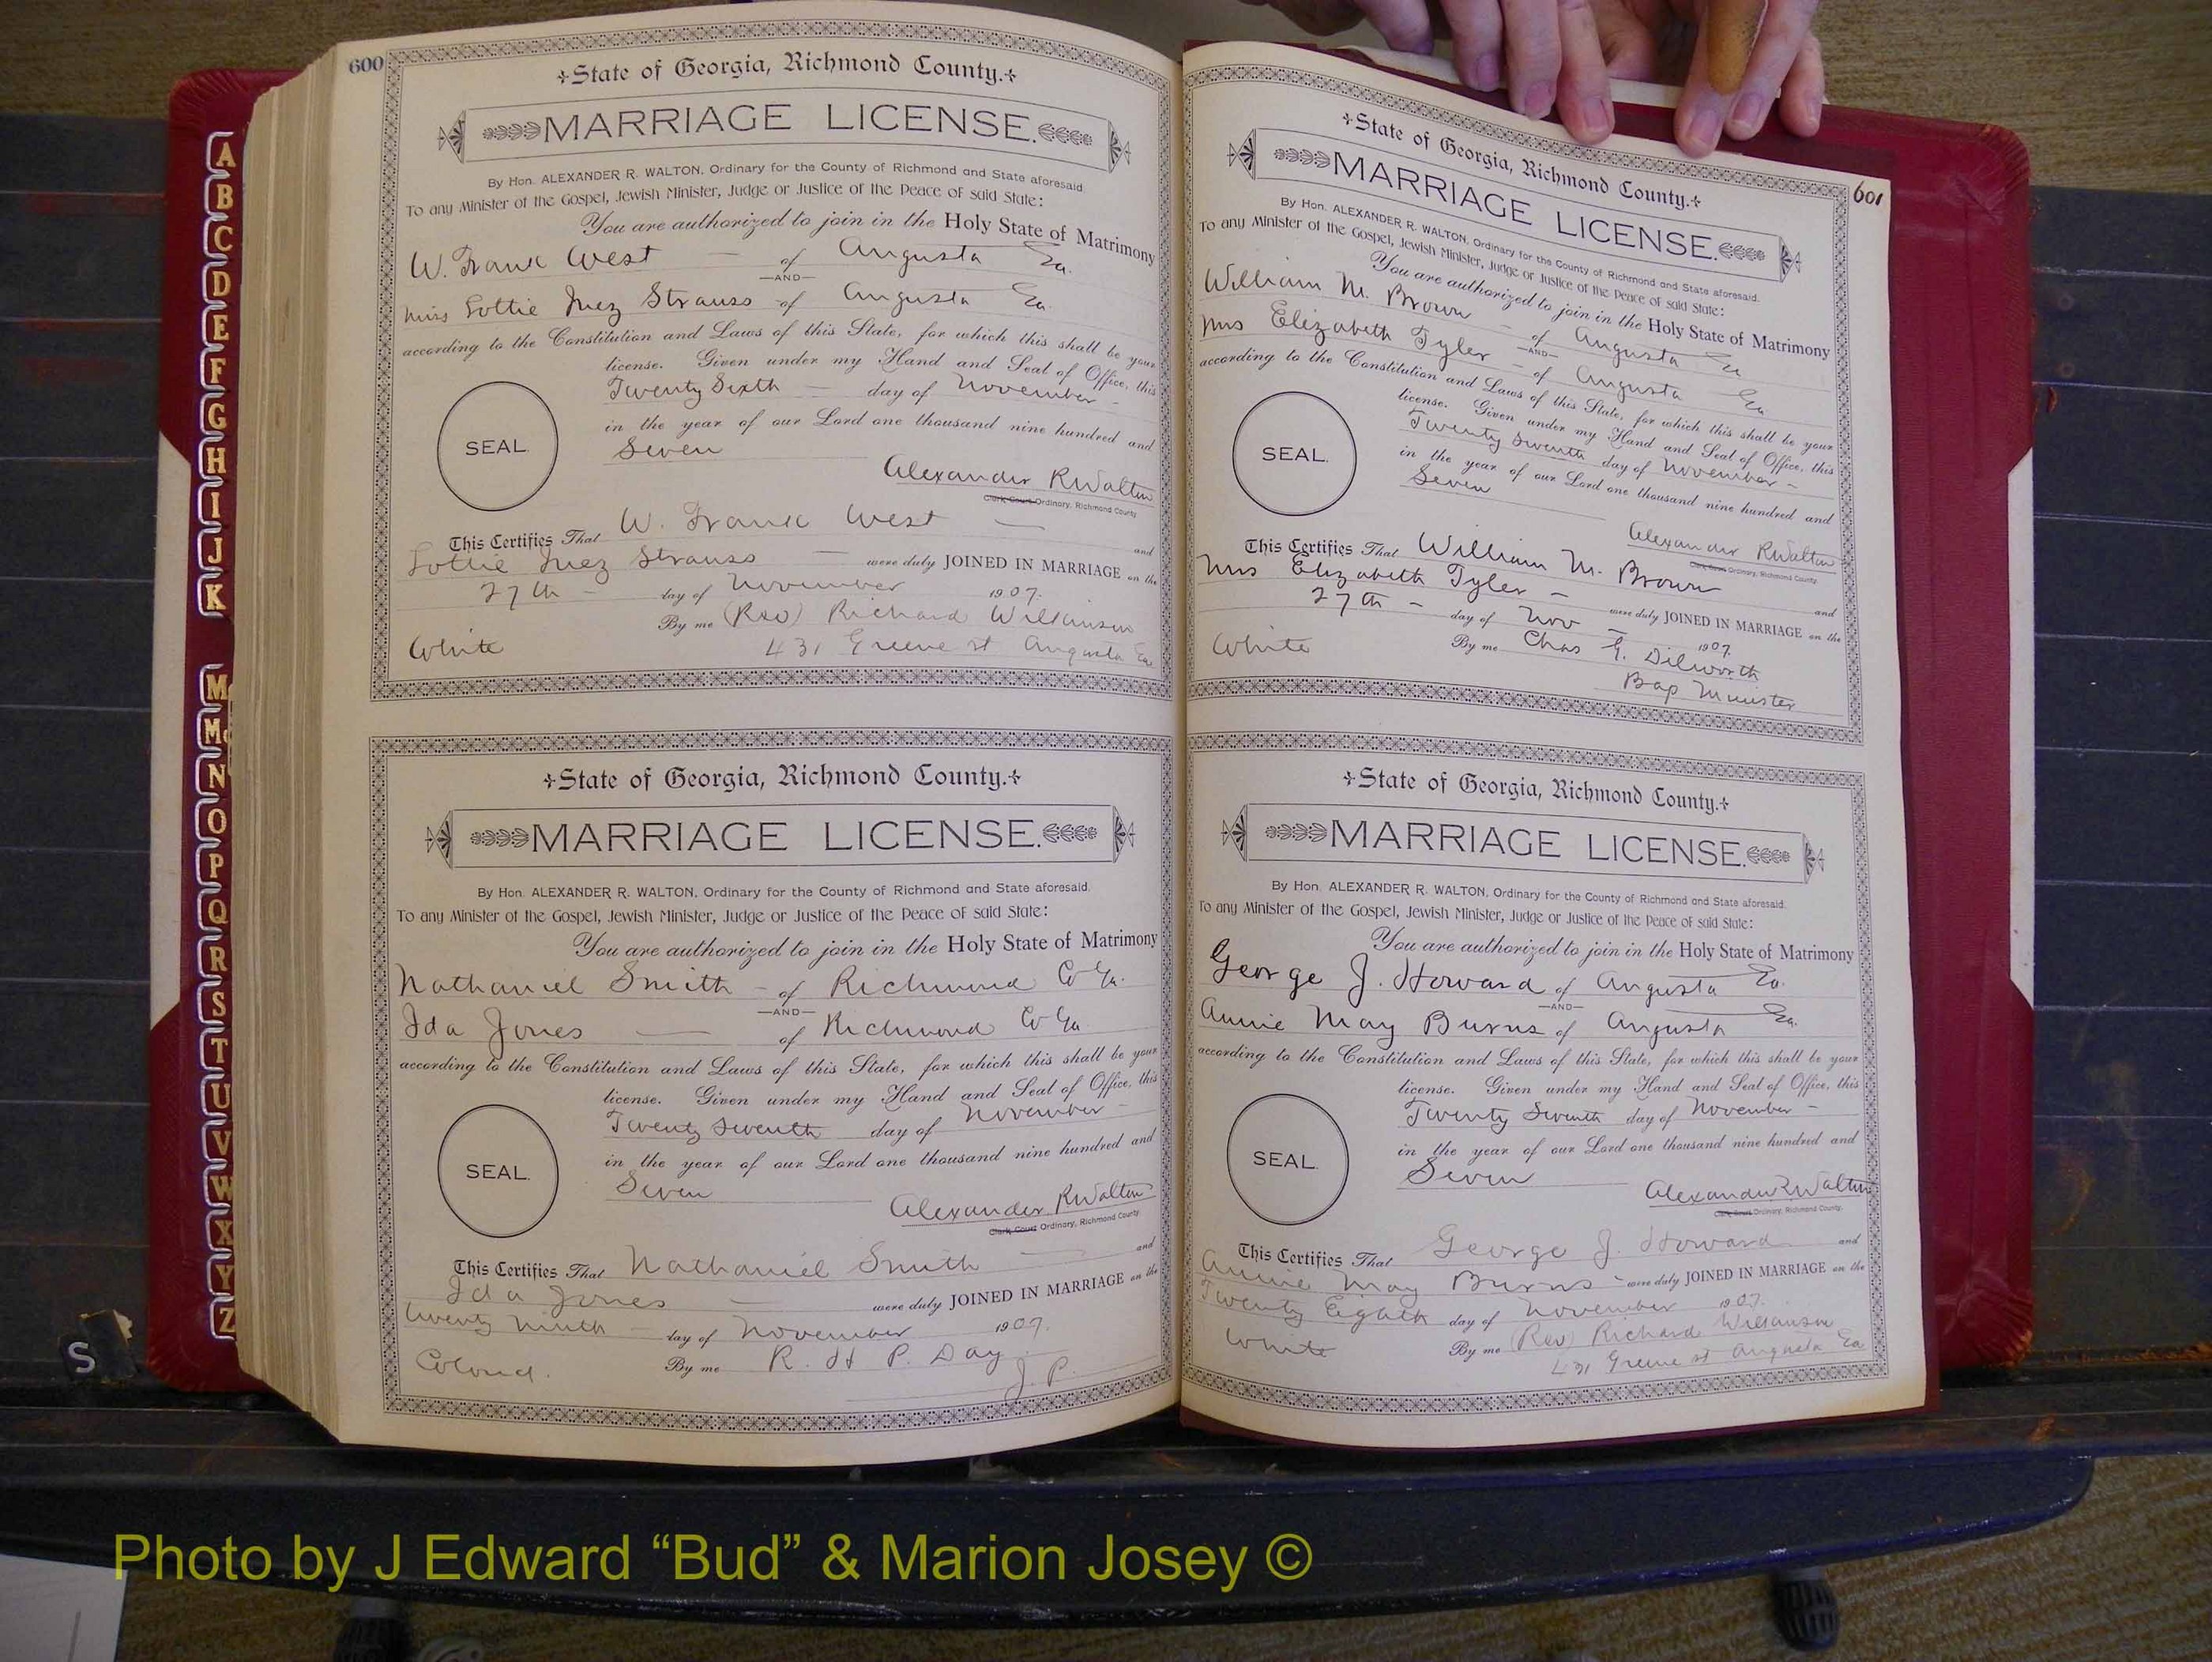 600
State of Georgia, Richmond County.
MARRIAGE LICENSE.
By Hon. ALEXANDER R. WALTON, Ordinary for the County of Richmond and State aforesaid.
To any Minister of the Gospel, Jewish Minister, Judge or Justice of the Peace of said State:
You are authorized to join in the Holy State of Matrimony
W. Frank West — of Augusta Ga.
—AND—
Miss Lottie Inez Strauss of Augusta Ga.
according to the Constitution and Laws of this State, for which this shall be your
license. Given under my Hand and Seal of Office, this
Twenty Sixth — day of November -
in the year of our Lord one thousand nine hundred and
SEAL.
Seven
Alexander R Walton
Clerk, Court Ordinary, Richmond County
This Certifies That W. Frank West — and
Lottie Inez Strauss — were duly JOINED IN MARRIAGE on the
27th - day of November 1907.
By me (Rev) Richard Wilkinson
White 431 Greene st Augusta Ga
State of Georgia, Richmond County.
MARRIAGE LICENSE.
By Hon. ALEXANDER R. WALTON, Ordinary for the County of Richmond and State aforesaid.
To any Minister of the Gospel, Jewish Minister, Judge or Justice of the Peace of said State:
You are authorized to join in the Holy State of Matrimony
Nathaniel Smith - of Richmond Co Ga.
—AND—
Ida Jones — of Richmond Co Ga
according to the Constitution and Laws of this State, for which this shall be your
license. Given under my Hand and Seal of Office, this
Twenty Seventh day of November -
in the year of our Lord one thousand nine hundred and
SEAL.
Seven
Alexander R Walton
Clerk, Court Ordinary, Richmond County
This Certifies That Nathaniel Smith — and
Ida Jones — were duly JOINED IN MARRIAGE on the
twenty ninth - day of November 1907.
Colored. By me R. H P. Day
J P.
601
State of Georgia, Richmond County.
MARRIAGE LICENSE.
By Hon. ALEXANDER R. WALTON, Ordinary for the County of Richmond and State aforesaid.
To any Minister of the Gospel, Jewish Minister, Judge or Justice of the Peace of said State:
You are authorized to join in the Holy State of Matrimony
William M. Brown - of Augusta Ga
—AND—
Mrs Elizabeth Tyler - of Augusta Ga
according to the Constitution and Laws of this State, for which this shall be your
license. Given under my Hand and Seal of Office, this
Twenty Seventh day of November -
in the year of our Lord one thousand nine hundred and
SEAL.
Seven
Alexander R Walton
Clerk, Court Ordinary, Richmond County
This Certifies That William M. Brown and
Mrs Elizabeth Tyler - were duly JOINED IN MARRIAGE on the
27th - day of Nov - 1907.
White By me Chas G. Dilworth
Bap Minister
State of Georgia, Richmond County.
MARRIAGE LICENSE.
By Hon. ALEXANDER R. WALTON, Ordinary for the County of Richmond and State aforesaid.
To any Minister of the Gospel, Jewish Minister, Judge or Justice of the Peace of said State:
You are authorized to join in the Holy State of Matrimony
George J. Howard of Augusta Ga.
—AND—
Annie May Burns of Augusta Ga.
according to the Constitution and Laws of this State, for which this shall be your
license. Given under my Hand and Seal of Office, this
Twenty Seventh day of November -
in the year of our Lord one thousand nine hundred and
SEAL.
Seven
Alexander R Walton
Clerk, Court Ordinary, Richmond County.
This Certifies That George J. Howard and
Annie May Burns - were duly JOINED IN MARRIAGE on the
Twenty Eighth day of November 1907.
White By me (Rev) Richard Wilkinson
431 Greene st Augusta Ga
A
B
C
D
E
F
G
H
I
J
K
M
Mc
N
O
P
Q
R
S
T
U
V
W
X
Y
Z
S
Photo by J Edward “Bud” & Marion Josey ©